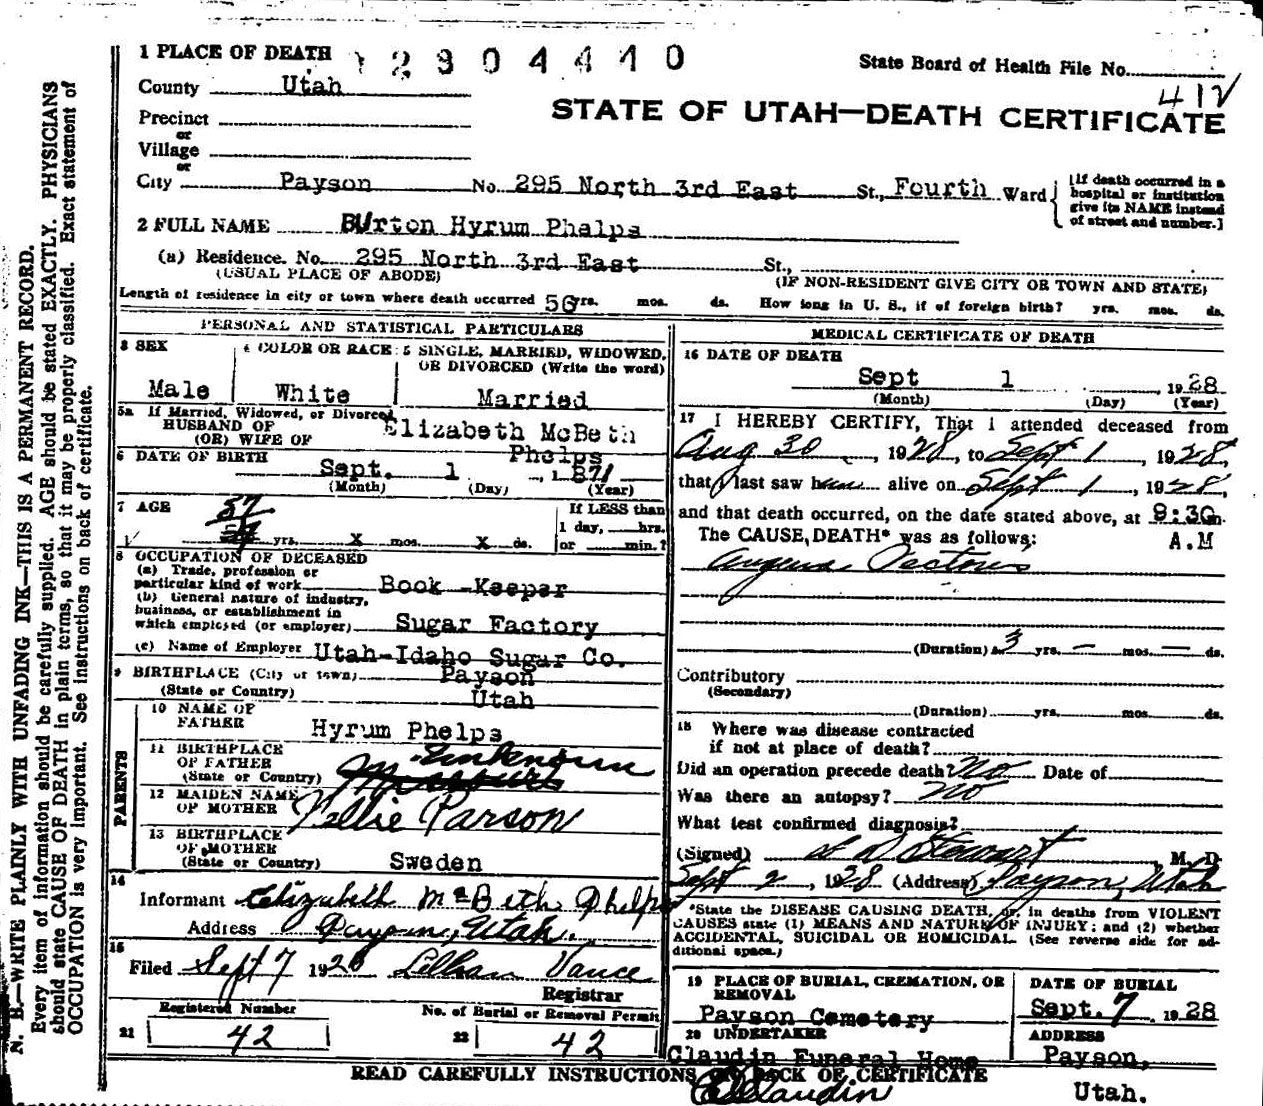 1 PLACE OF DEATH 12304410 State Board of Health File No.
County Utah 412
STATE OF UTAH—DEATH CERTIFICATE
Precinct
or
Village
or
City Payson No. 295 North 3rd East St., Fourth Ward
[If death occurred in a
hospital or institution
give its NAME instead
of street and number.]
2 FULL NAME Burton Hyrum Phelps
(a) Residence. No. 295 North 3rd East St.,
(USUAL PLACE OF ABODE) (IF NON-RESIDENT GIVE CITY OR TOWN AND STATE)
Length of residence in city or town where death occurred 56 yrs. mos. ds. How long in U. S., if of foreign birth? yrs. mos. ds.
PERSONAL AND STATISTICAL PARTICULARS
3 SEX
Male
4 COLOR OR RACE
White
5 SINGLE, MARRIED, WIDOWED,
OR DIVORCED (Write the word)
Married
5a If Married, Widowed, or Divorced
HUSBAND OF
(OR) WIFE OF
Elizabeth McBeth
Phelps
6 DATE OF BIRTH
Sept. 1 , 1871
(Month) (Day) (Year)
7 AGE 57
yrs. X mos. X ds.
If LESS than
1 day, hrs.
or min.?
8 OCCUPATION OF DECEASED
(a) Trade, profession or
particular kind of work Book-Keeper
(b) General nature of industry,
business, or establishment in
which employed (or employer) Sugar Factory
(c) Name of Employer Utah-Idaho Sugar Co.
9 BIRTHPLACE (City or town) Payson
(State or Country) Utah
PARENTS
10 NAME OF
FATHER
Hyrum Phelps
11 BIRTHPLACE
OF FATHER
(State or Country)
Unknown
12 MAIDEN NAME
OF MOTHER
Nellie Parson
13 BIRTHPLACE
OF MOTHER
(State or Country) Sweden
14
Informant Elizabeth McBeth Phelps
Address Payson, Utah.
15
Filed Sept 7 1928 Lillian Vance
Registrar
Registered Number No. of Burial or Removal Permit
21 42 22 42
MEDICAL CERTIFICATE OF DEATH
16 DATE OF DEATH
Sept 1 , 1928
(Month) (Day) (Year)
17 I HEREBY CERTIFY, That I attended deceased from
Aug 30 , 1928, to Sept 1 , 1928,
that I last saw him alive on Sept 1 , 1928,
and that death occurred, on the date stated above, at 9:30 m.
The CAUSE, DEATH* was as follows: A.M
Angina Pectoris
(Duration) 3 yrs. — mos. — ds.
Contributory
(Secondary)
(Duration) yrs. mos. ds.
18 Where was disease contracted
if not at place of death?
Did an operation precede death? No Date of
Was there an autopsy? No
What test confirmed diagnosis?
(Signed) Stewart , M. D.
Sept 2 , 1928 (Address) Payson, Utah
*State the DISEASE CAUSING DEATH, or, in deaths from VIOLENT
CAUSES state (1) MEANS AND NATURE OF INJURY; and (2) whether
ACCIDENTAL, SUICIDAL OR HOMICIDAL. (See reverse side for ad-
ditional space.)
19 PLACE OF BURIAL, CREMATION, OR
REMOVAL
Payson Cemetery
DATE OF BURIAL
Sept. 7 , 1928
20 UNDERTAKER
Claudin Funeral Home
Claudin
ADDRESS
Payson,
Utah.
READ CAREFULLY INSTRUCTIONS ON BACK OF CERTIFICATE
N. B.—WRITE PLAINLY WITH UNFADING INK—THIS IS A PERMANENT RECORD.
Every item of information should be carefully supplied. AGE should be stated EXACTLY. PHYSICIANS
should state CAUSE OF DEATH in plain terms, so that it may be properly classified. Exact statement of
OCCUPATION is very important. See instructions on back of certificate.